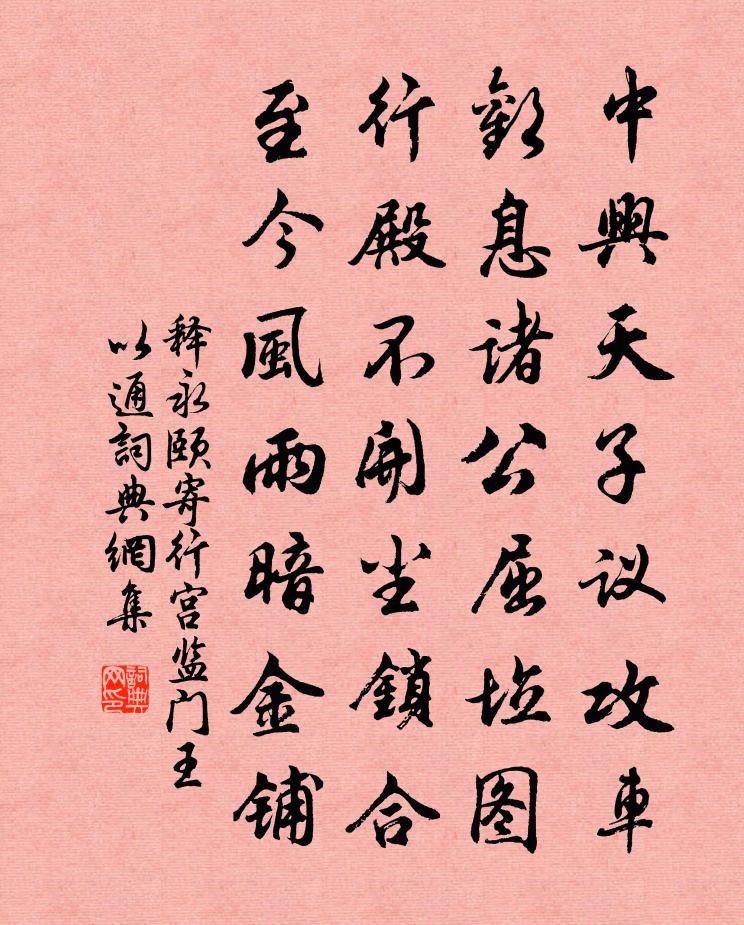 中興天子议攻車
歎息诸公屈图
行殿不開尘鎖合
至今風雨暗金铺
释永颐寄行宫监门王
以通詞典網集
詞典
网印